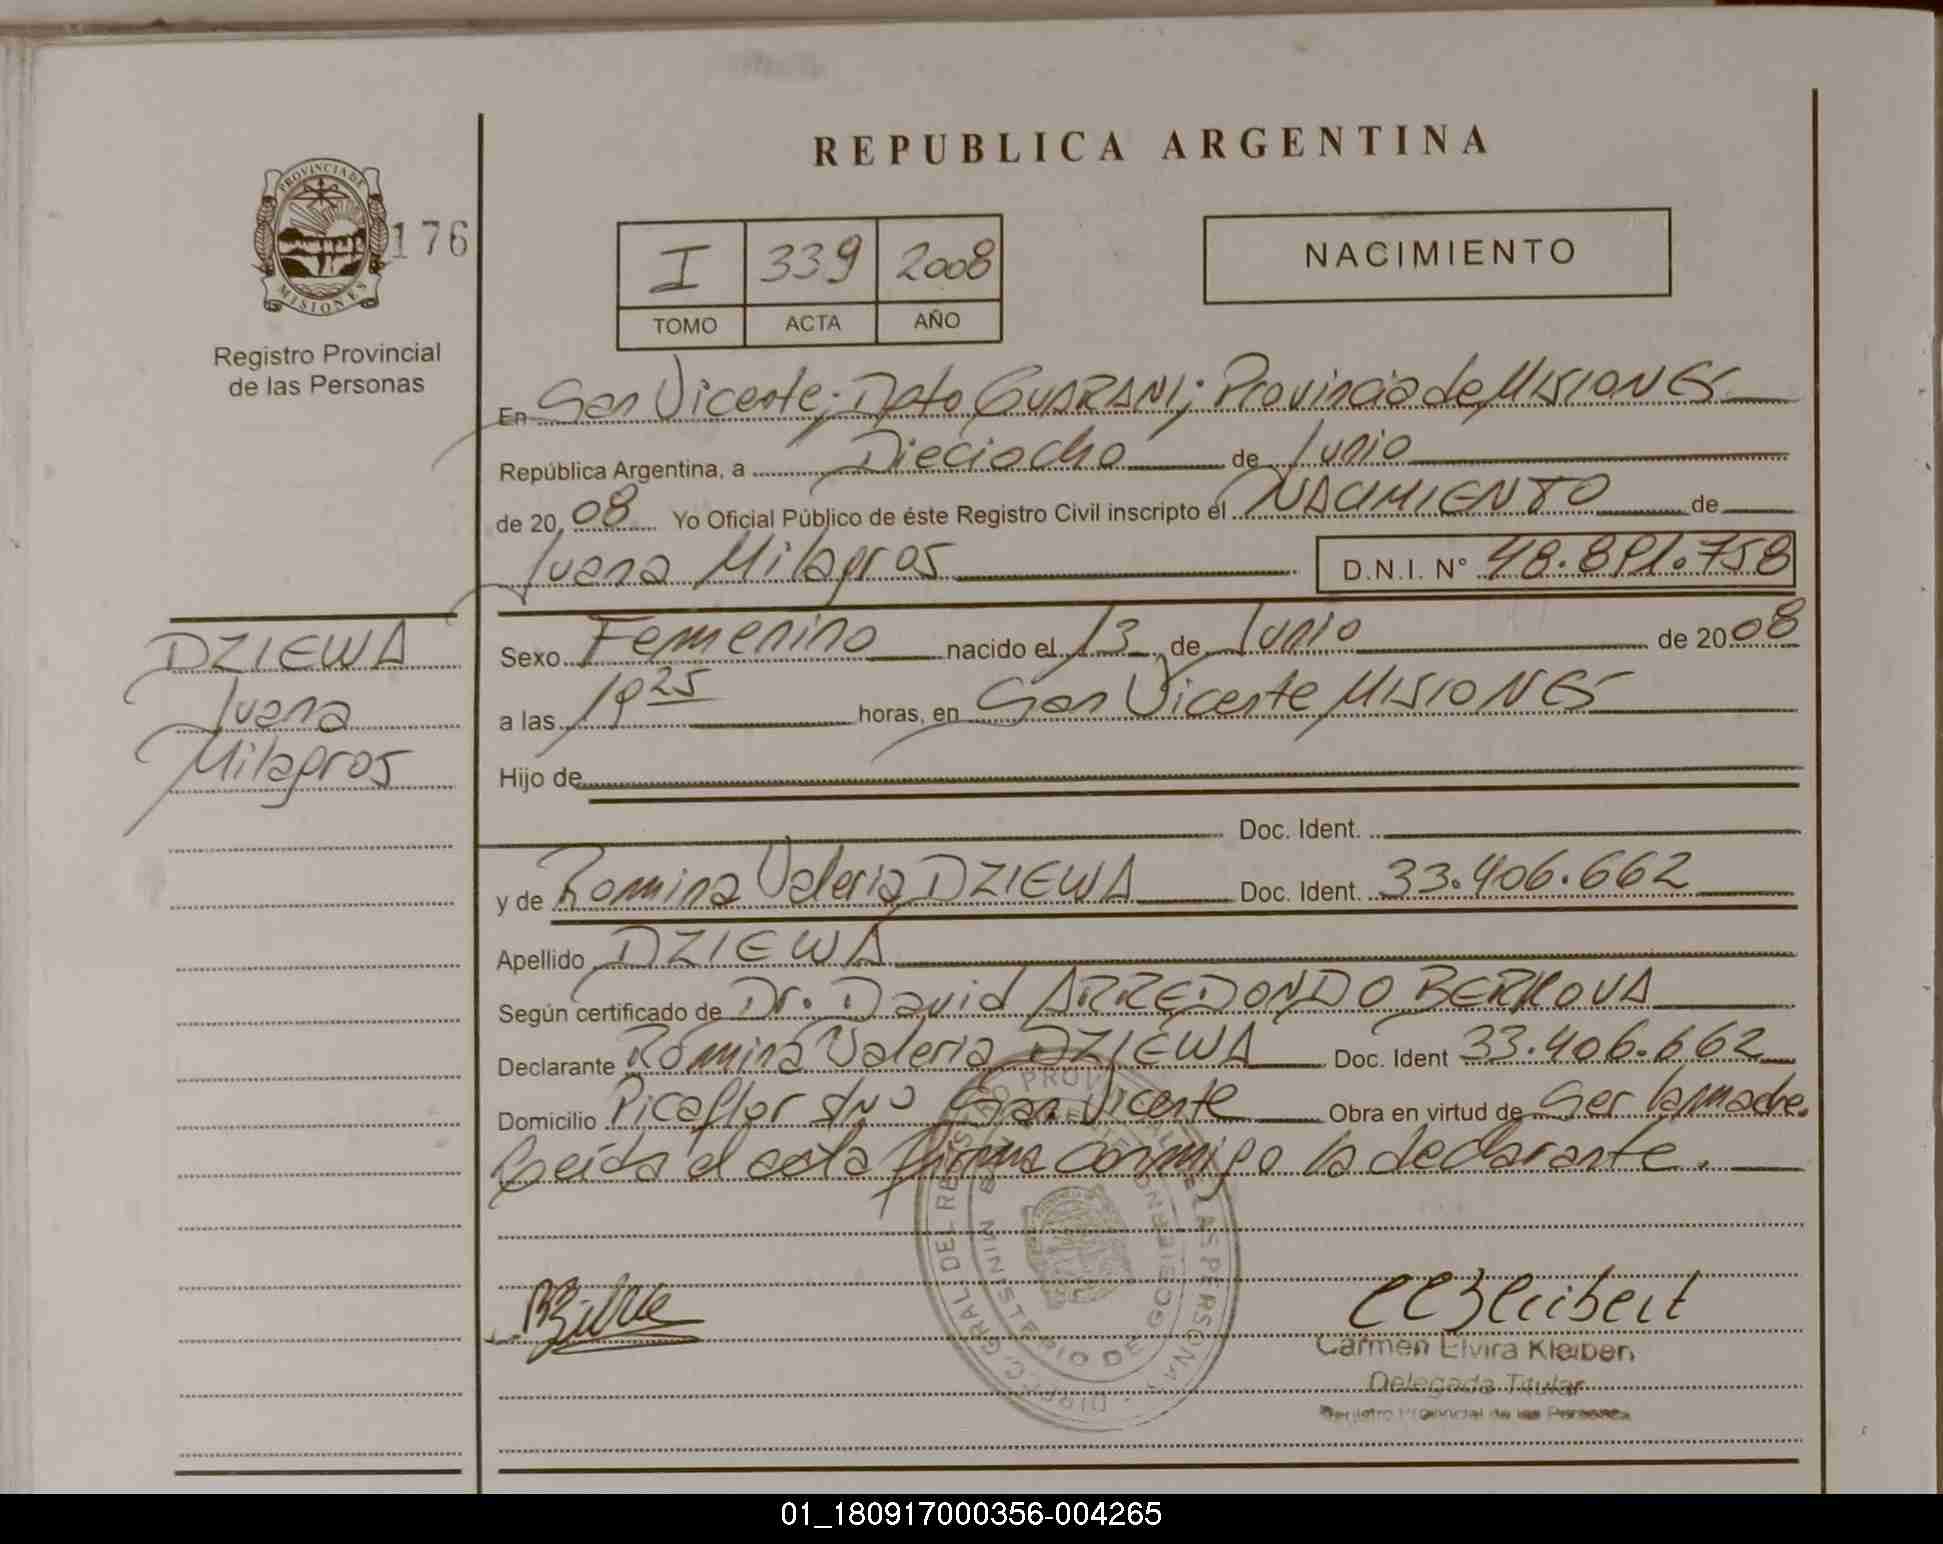 REPUBLICA ARGENTINA
PROVINCIA DE
MISIONES
176
Registro Provincial
de las Personas
I 339 2008
TOMO ACTA AÑO
NACIMIENTO
En San Vicente; Dpto GUARANI; Provincia de MISIONES
República Argentina, a Dieciocho de Junio
de 20 08 Yo Oficial Público de éste Registro Civil inscripto el NACIMIENTO de
Juana Milagros D.N.I. N° 48.891.758
DZIEWA
Juana
Milagros
Sexo Femenino nacido el 13 de Junio de 20 08
a las 19 25 horas, en San Vicente MISIONES
Hijo de
Doc. Ident.
y de Romina Valeria DZIEWA Doc. Ident. 33.406.662
Apellido DZIEWA
Según certificado de Dr. David ARREDONDO
Declarante Romina Valeria DZIEWA Doc. Ident 33.406.662
Domicilio Picaflor s/nº San Vicente Obra en virtud de Ser la madre.
Leída el acta firma conmigo la declarante.
Carmen Elvira Kleibert
Delegada Titular
Registro Provincial de las Personas
01_180917000356-004265